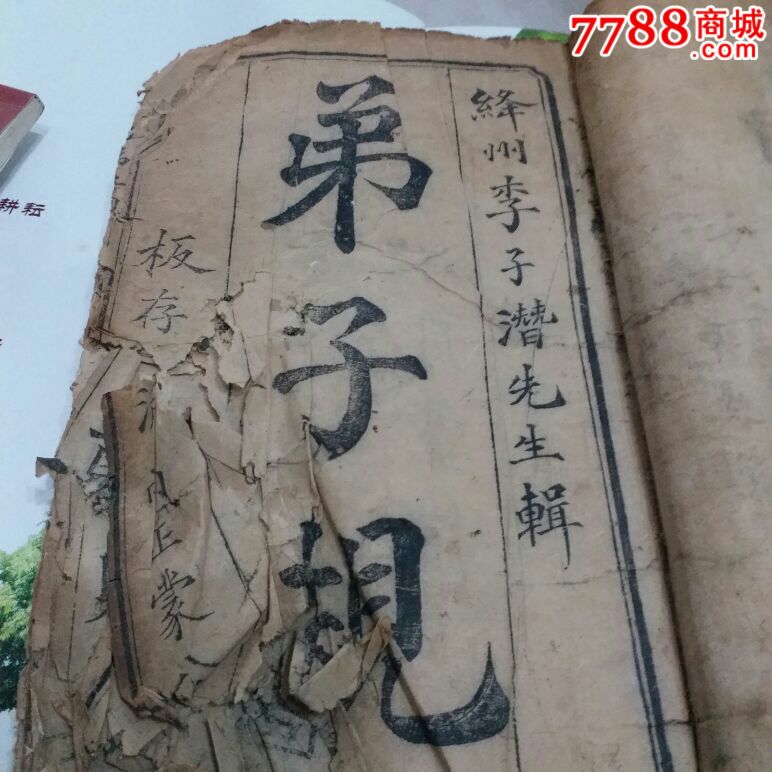 7788商城
.com
耕耘
絳州李子潛先生輯
弟子規
板存
正蒙